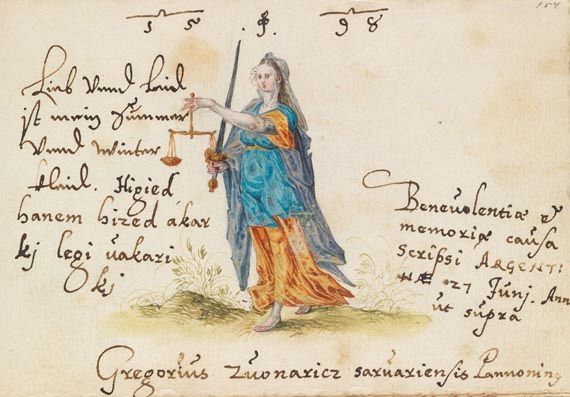 154
15 .ꝭ. 98
Lieb vnnd Laid
ist mein Summer
vnnd winter
klaid. Higied
hanem hized akar
kj legi uakari
Okj
Beneuolentiæ et
memoriæ causa
scripsi ARGENTI:
NÆ 27 Junj. Ann
ut supra
Gregorius Zuonaricz saruariensis Pannonius